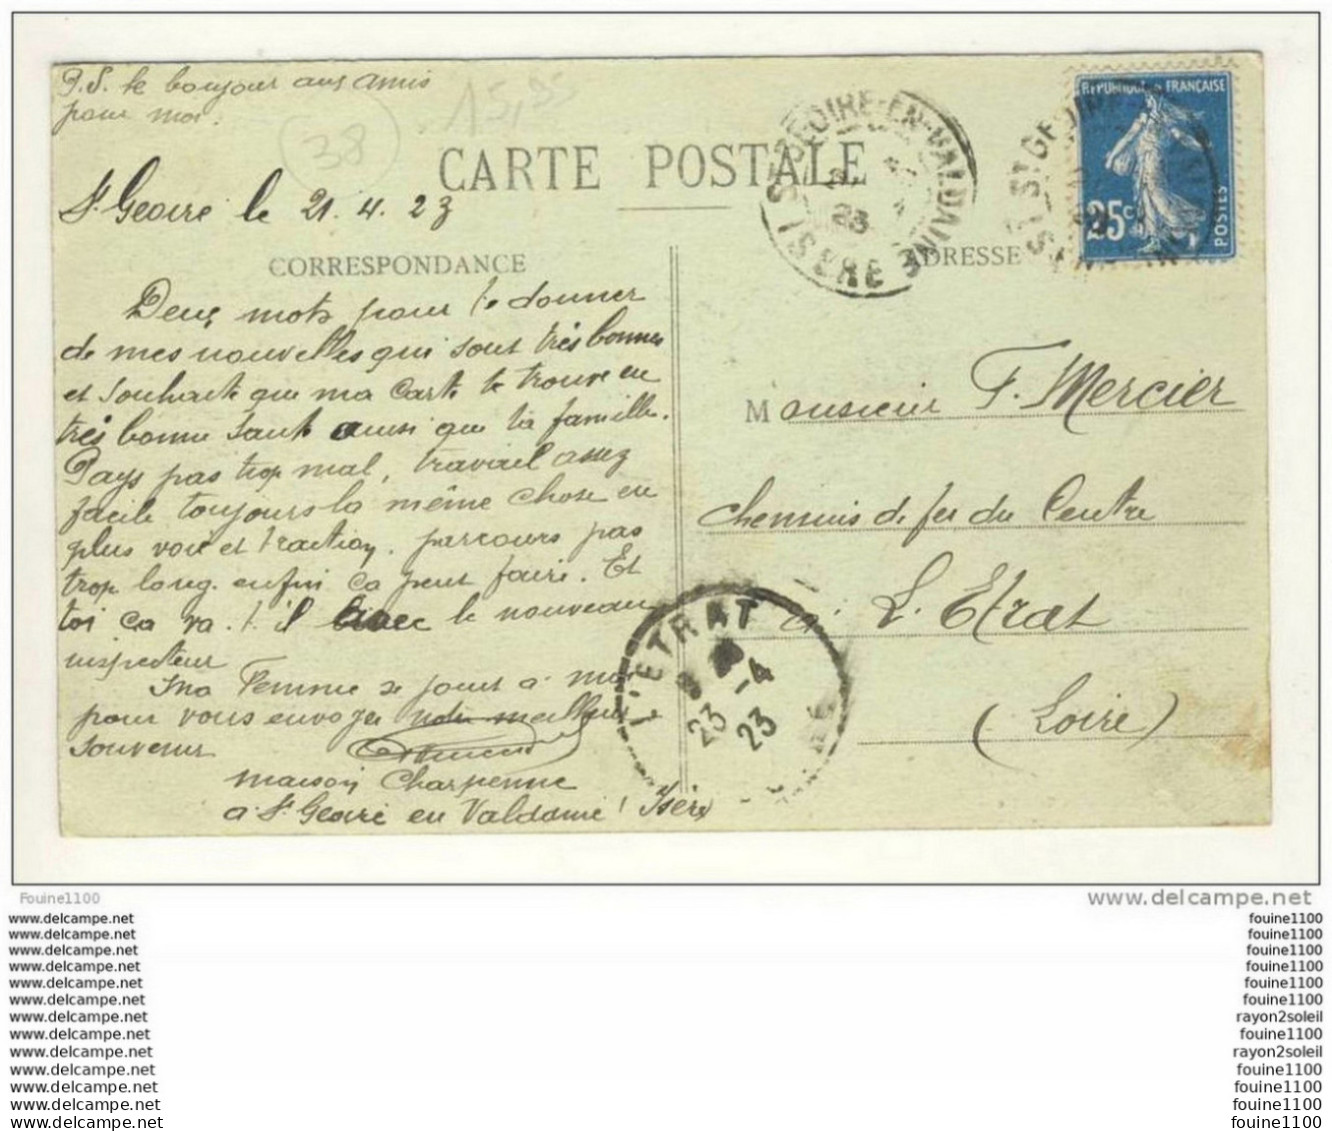 P.S. le bonjour aux amis
pour moi.
38
15,35
CARTE POSTALE
St Geoire le 21.4.23
CORRESPONDANCE
ADRESSE
ST GEOIRE-EN-VALDAINE
ISERE
23
REPUBLIQUE FRANÇAISE
25c
POSTES
Deux mots pour te donner
de mes nouvelles qui sont très bonnes
et souhaite que ma carte te trouve en
très bonne santé ainsi que ta famille.
Pays pas trop mal, travail assez
facile toujours la même chose en
plus voie et traction. parcours pas
trop long. enfin ça peut faire. Et
toi ça va. t'il avec le nouveau
inspecteur
Ma Femme se joint à moi
pour vous envoyer notre meilleur
souvenir
maison Charpenne
a St Geoire en Valdaine (Isère)
Monsieur F. Mercier
chemins de fer du Centre
à L'Etrat
(Loire)
L'ETRAT
-4
23 23
Fouine1100
www.delcampe.net
www.delcampe.net
fouine1100
www.delcampe.net
fouine1100
www.delcampe.net
fouine1100
www.delcampe.net
fouine1100
www.delcampe.net
fouine1100
www.delcampe.net
fouine1100
www.delcampe.net
rayon2soleil
www.delcampe.net
fouine1100
www.delcampe.net
rayon2soleil
www.delcampe.net
fouine1100
www.delcampe.net
fouine1100
www.delcampe.net
fouine1100
www.delcampe.net
fouine1100